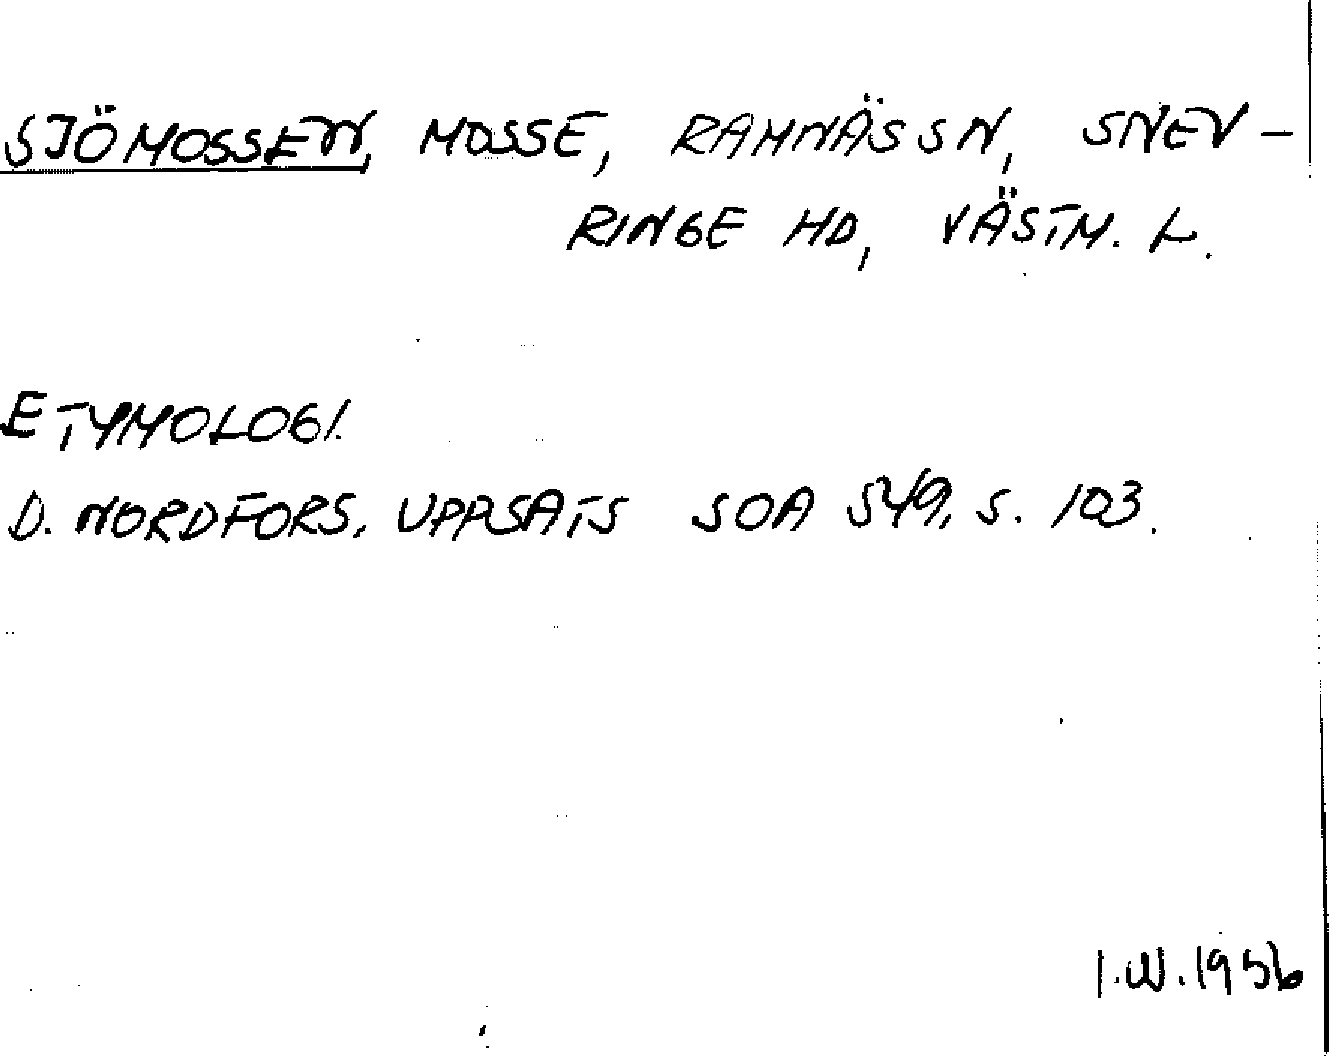 SJÖMOSSEN, MOSSE, RAMNÄS SN, SNEV-
RINGE HD, VÄSTM. L.
ETYMOLOGI.
D. NORDFORS, UPPSATS SOA 549, S. 103.
I.W. 1956